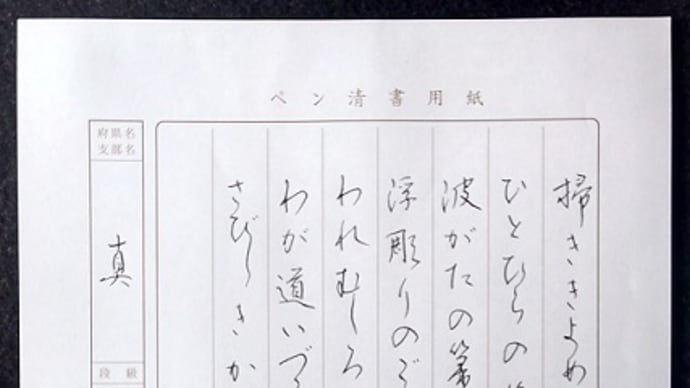 ペン清書用紙
掃ききよめ
ひとひらの
波がたの箒
浮彫りのご
われむしろ
わが道いづ
さびしきか
府県名
支部名
真
段級